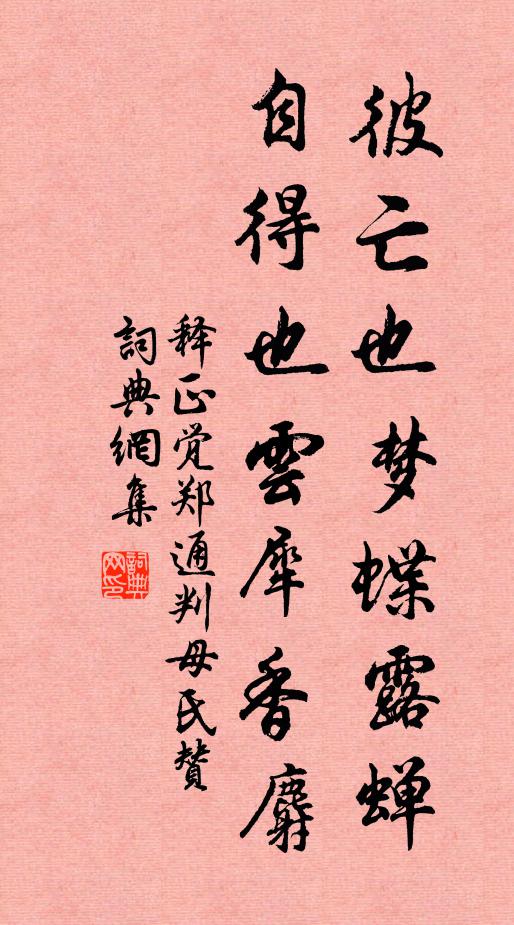 彼亡也梦蝶露蝉
自得也雲犀香麝
释正觉郑通判母氏赞
詞典網集
詞典网印